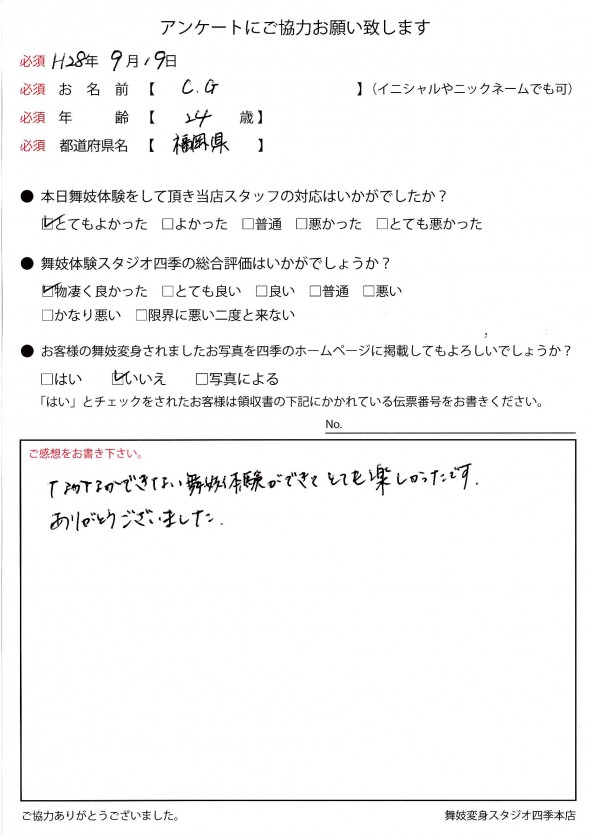 アンケートにご協力お願い致します
必須 H28年 9月19日
必須 お名前 【 C.G 】（イニシャルやニックネームでも可）
必須 年齢 【 24 歳】
必須 都道府県名 【 福岡県 】
● 本日舞妓体験をして頂き当店スタッフの対応はいかがでしたか？
☑とてもよかった □よかった □普通 □悪かった □とても悪かった
● 舞妓体験スタジオ四季の総合評価はいかがでしょうか？
☑物凄く良かった □とても良い □良い □普通 □悪い
□かなり悪い □限界に悪い二度と来ない
● お客様の舞妓変身されましたお写真を四季のホームページに掲載してもよろしいでしょうか？
□はい ☑いいえ □写真による
「はい」とチェックをされたお客様は領収書の下記にかかれている伝票番号をお書きください。
No.
ご感想をお書き下さい。
なかなかできない舞妓体験ができてとても楽しかったです.
ありがとうございました.
ご協力ありがとうございました。 舞妓変身スタジオ四季本店